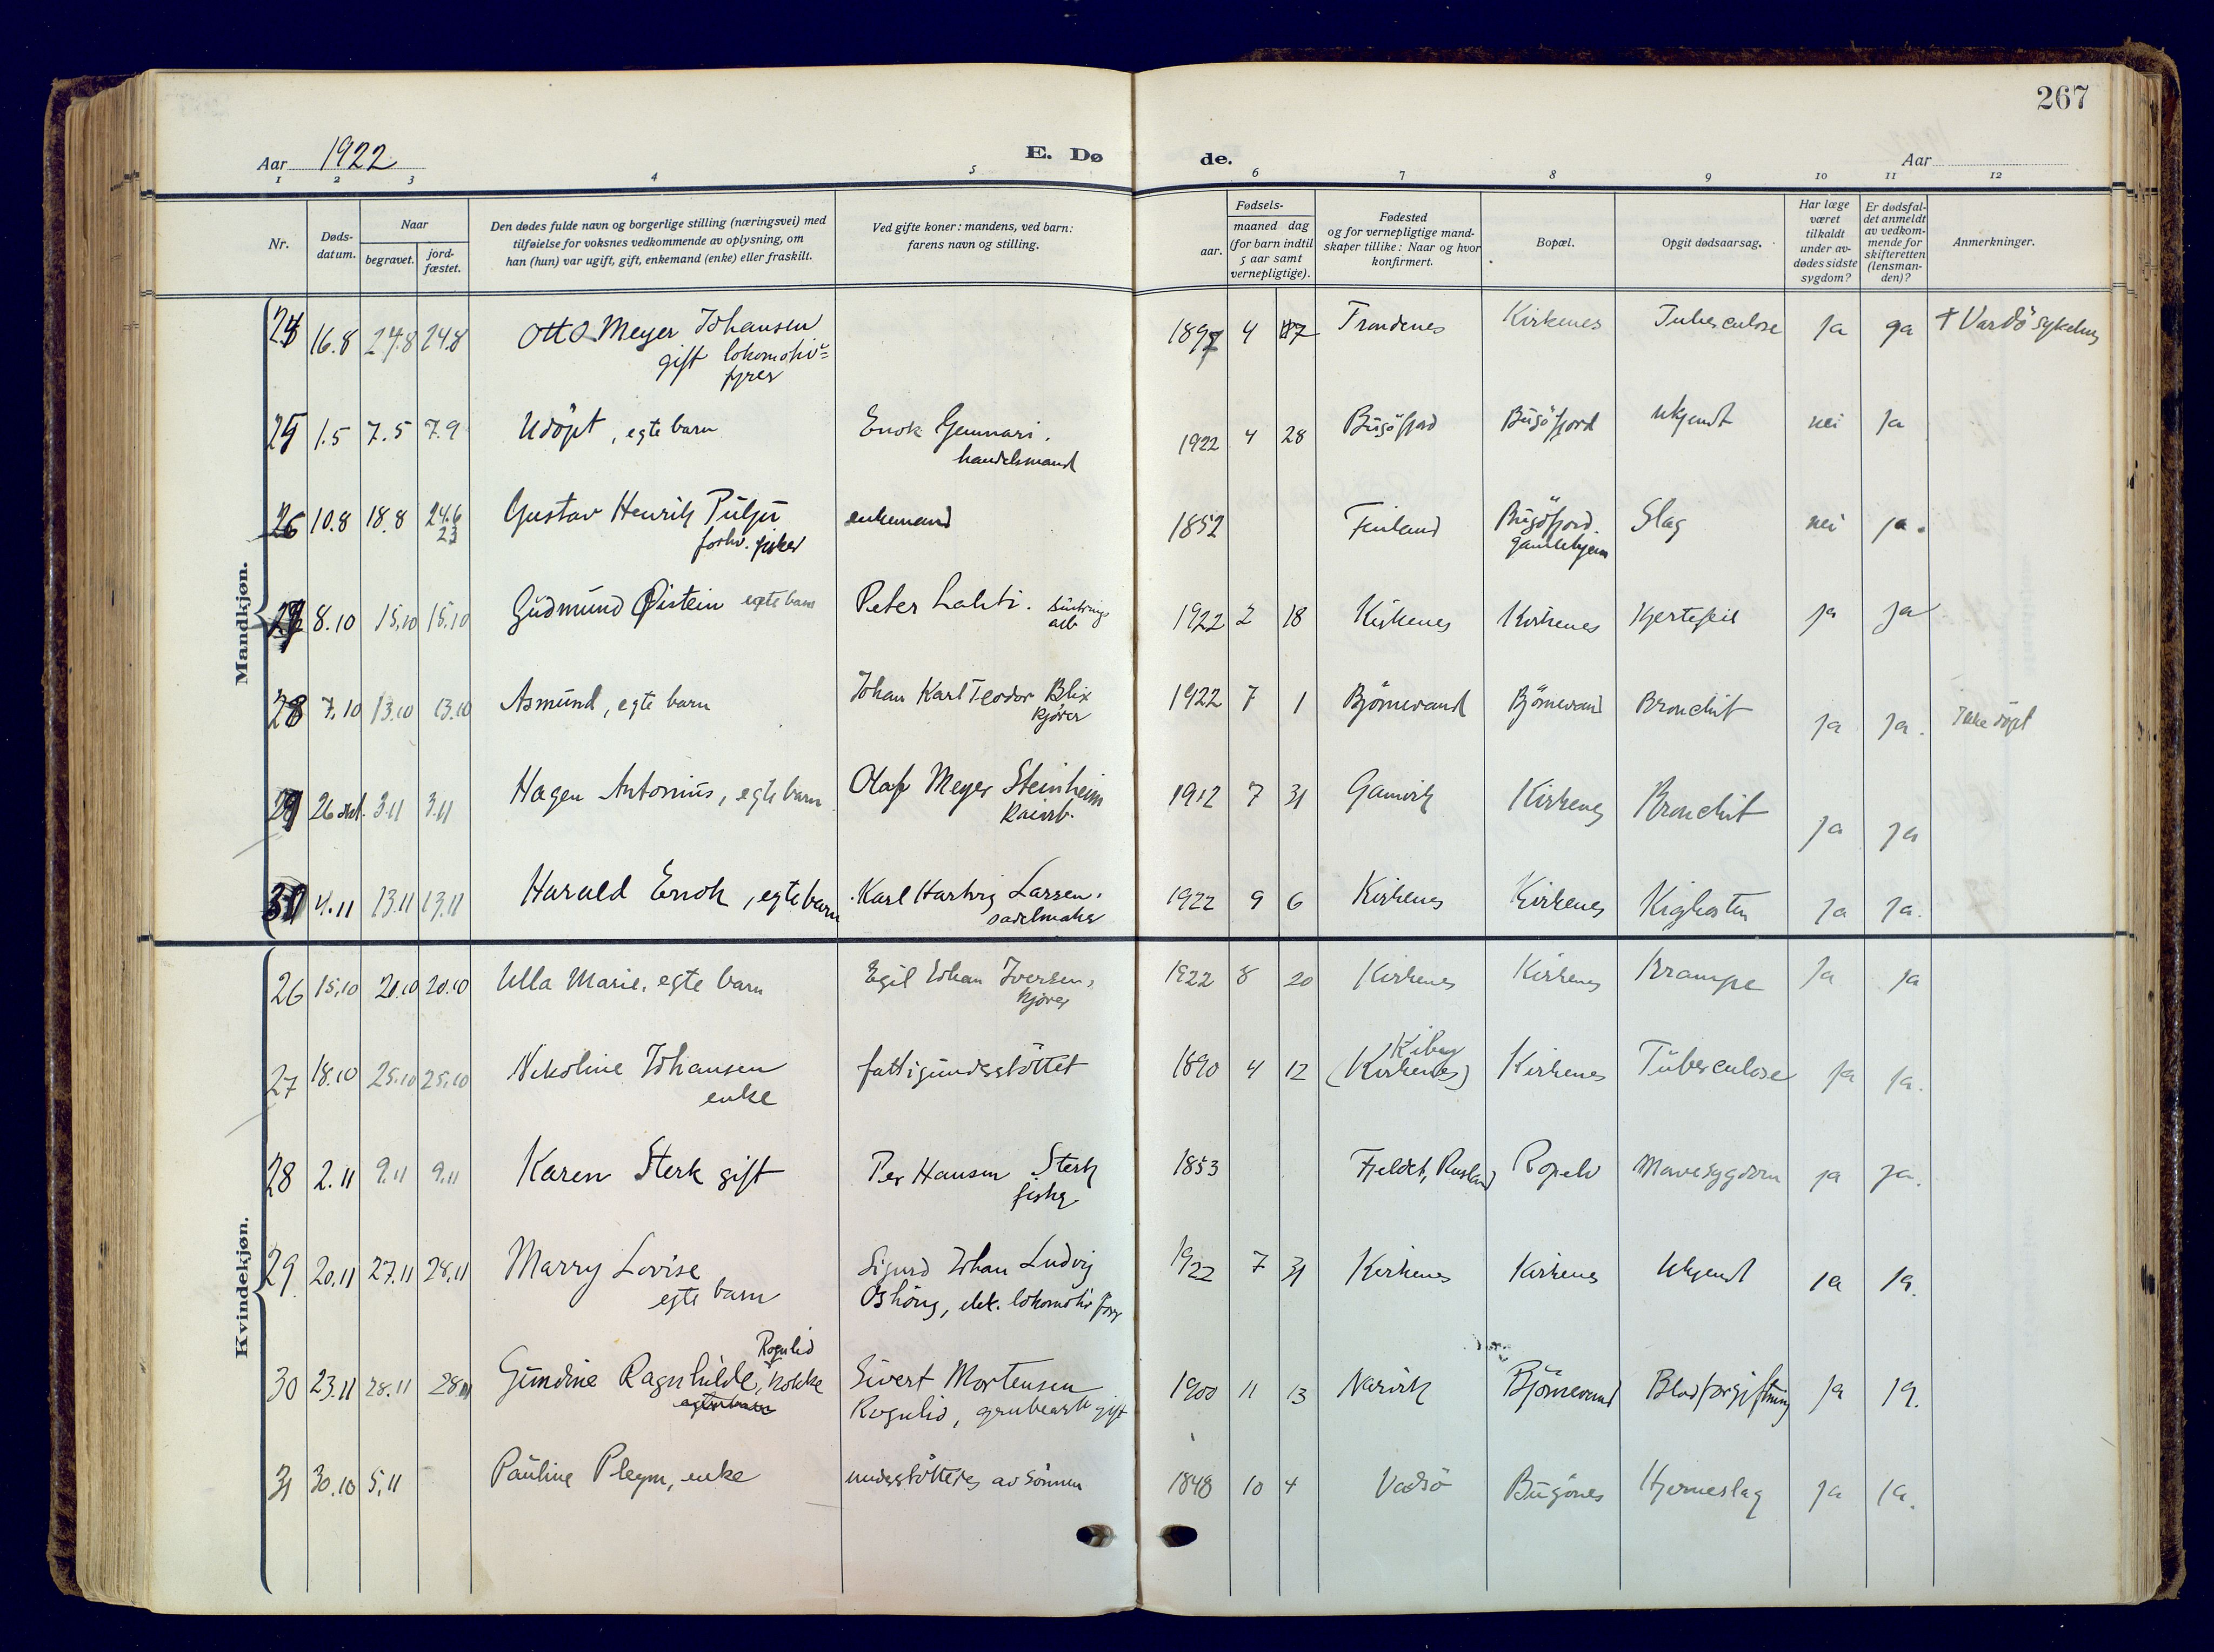 267
Aar 1922
E. Dø
de.
Aar
1 2 3 4 5 6 7 8 9 10 11 12
Nr.
Døds-
datum.
Naar
begravet.
jord-
fæstet.
Den dødes fulde navn og borgerlige stilling (næringsvei) med
tilføielse for voksnes vedkommende av oplysning, om
han (hun) var ugift, gift, enkemand (enke) eller fraskilt.
Ved gifte koner: mandens, ved barn:
farens navn og stilling.
Fødsels-
aar.
maaned dag
(for barn indtil
5 aar samt
vernepligtige).
Fødested
og for vernepligtige mand-
skaper tillike: Naar og hvor
konfirmert.
Bopæl.
Opgit dødsaarsag.
Har læge
været
tilkaldt
under av-
dødes sidste
sygdom?
Er dødsfal-
det anmeldt
av vedkom-
mende for
skifteretten
(lensman-
den)?
Anmerkninger.
Mandkjøn.
24 16.8 24.8 24.8 Otto Meyer Johansen 1897 4 Trondenes Kirkenes Tuberculose Ja ja † Vardö
gift lokomotiv=
fyrer
25 1.5 7.5 7.9 Udöpt, egte barn Enok Gennari. 1922 4 28 Bugöfjord Bugöfjord Ukjendt nei ja
handelsmand
26 10.8 18.8 24.6 Gustav Henrik enkemand 1852 Finland Bugöfjord. Slag nei ja.
23 forhv. fisker gamlehjem
27 8.10 15.10 15.10 Gudmund Øistein egte barn Peter Lahti. 1922 2 18 Kirkenes Kirkenes Hjertefeil ja ja
arb
28 7.10 13.10 13.10 Asmund, egte barn Johan Karl Teodor Blix 1922 7 1 Björnevand Björnevand Bronchit ja ja. Ikke döpt
Kjörer
29 26 okt. 3.11 3.11 Hagen Antonius, egte barn Olaf Meyer Steinheim 1912 7 31 Gamvik Kirkenes Bronchit ja ja
Kaiarb.
30 4.11 13.11 13.11 Harald Enok, egte barn Karl Hartvig Larsen. 1922 9 6 Kirkenes Kirkenes Kighosten ja ja.
sadelmaker
Kvindekjøn.
26 15.10 20.10 20.10 Ulla Marie, egte barn Egil Johan Iversen, 1922 8 20 Kirkenes Kirkenes Krampe Ja ja
Kjörer
Kiberg
27 18.10 25.10 25.10 Nikoline Johansen fattigunderstöttet 1890 4 12 (Kirkenes) Kirkenes Tuberculose ja ja.
enke
28 2.11 9.11 9.11 Karen Sterk gift Per Hansen Sterk 1853 Fjeldet, Rusland Ropelv Mavesygdom ja ja.
fisker
29 20.11 27.11 28.11 Marry Lovise Sigurd Johan Ludvig 1922 7 31 Kirkenes Kirkenes Ukjendt ja ja.
egte barn elek. lokomotiv
Rognlid
30 23.11 28.11 28.11 Gundine Ragnhilde, kokke Sivert Mortensen 1900 11 13 Narvik Björnevand Blodforgiftning ja ja.
egte barn Rognlid, grubearb gift
31 30.10 5.11 Pauline Pleym, enke understöttedes av sönnen 1848 10 4 Vadsö Bugönes Hjerneslag ja ja.